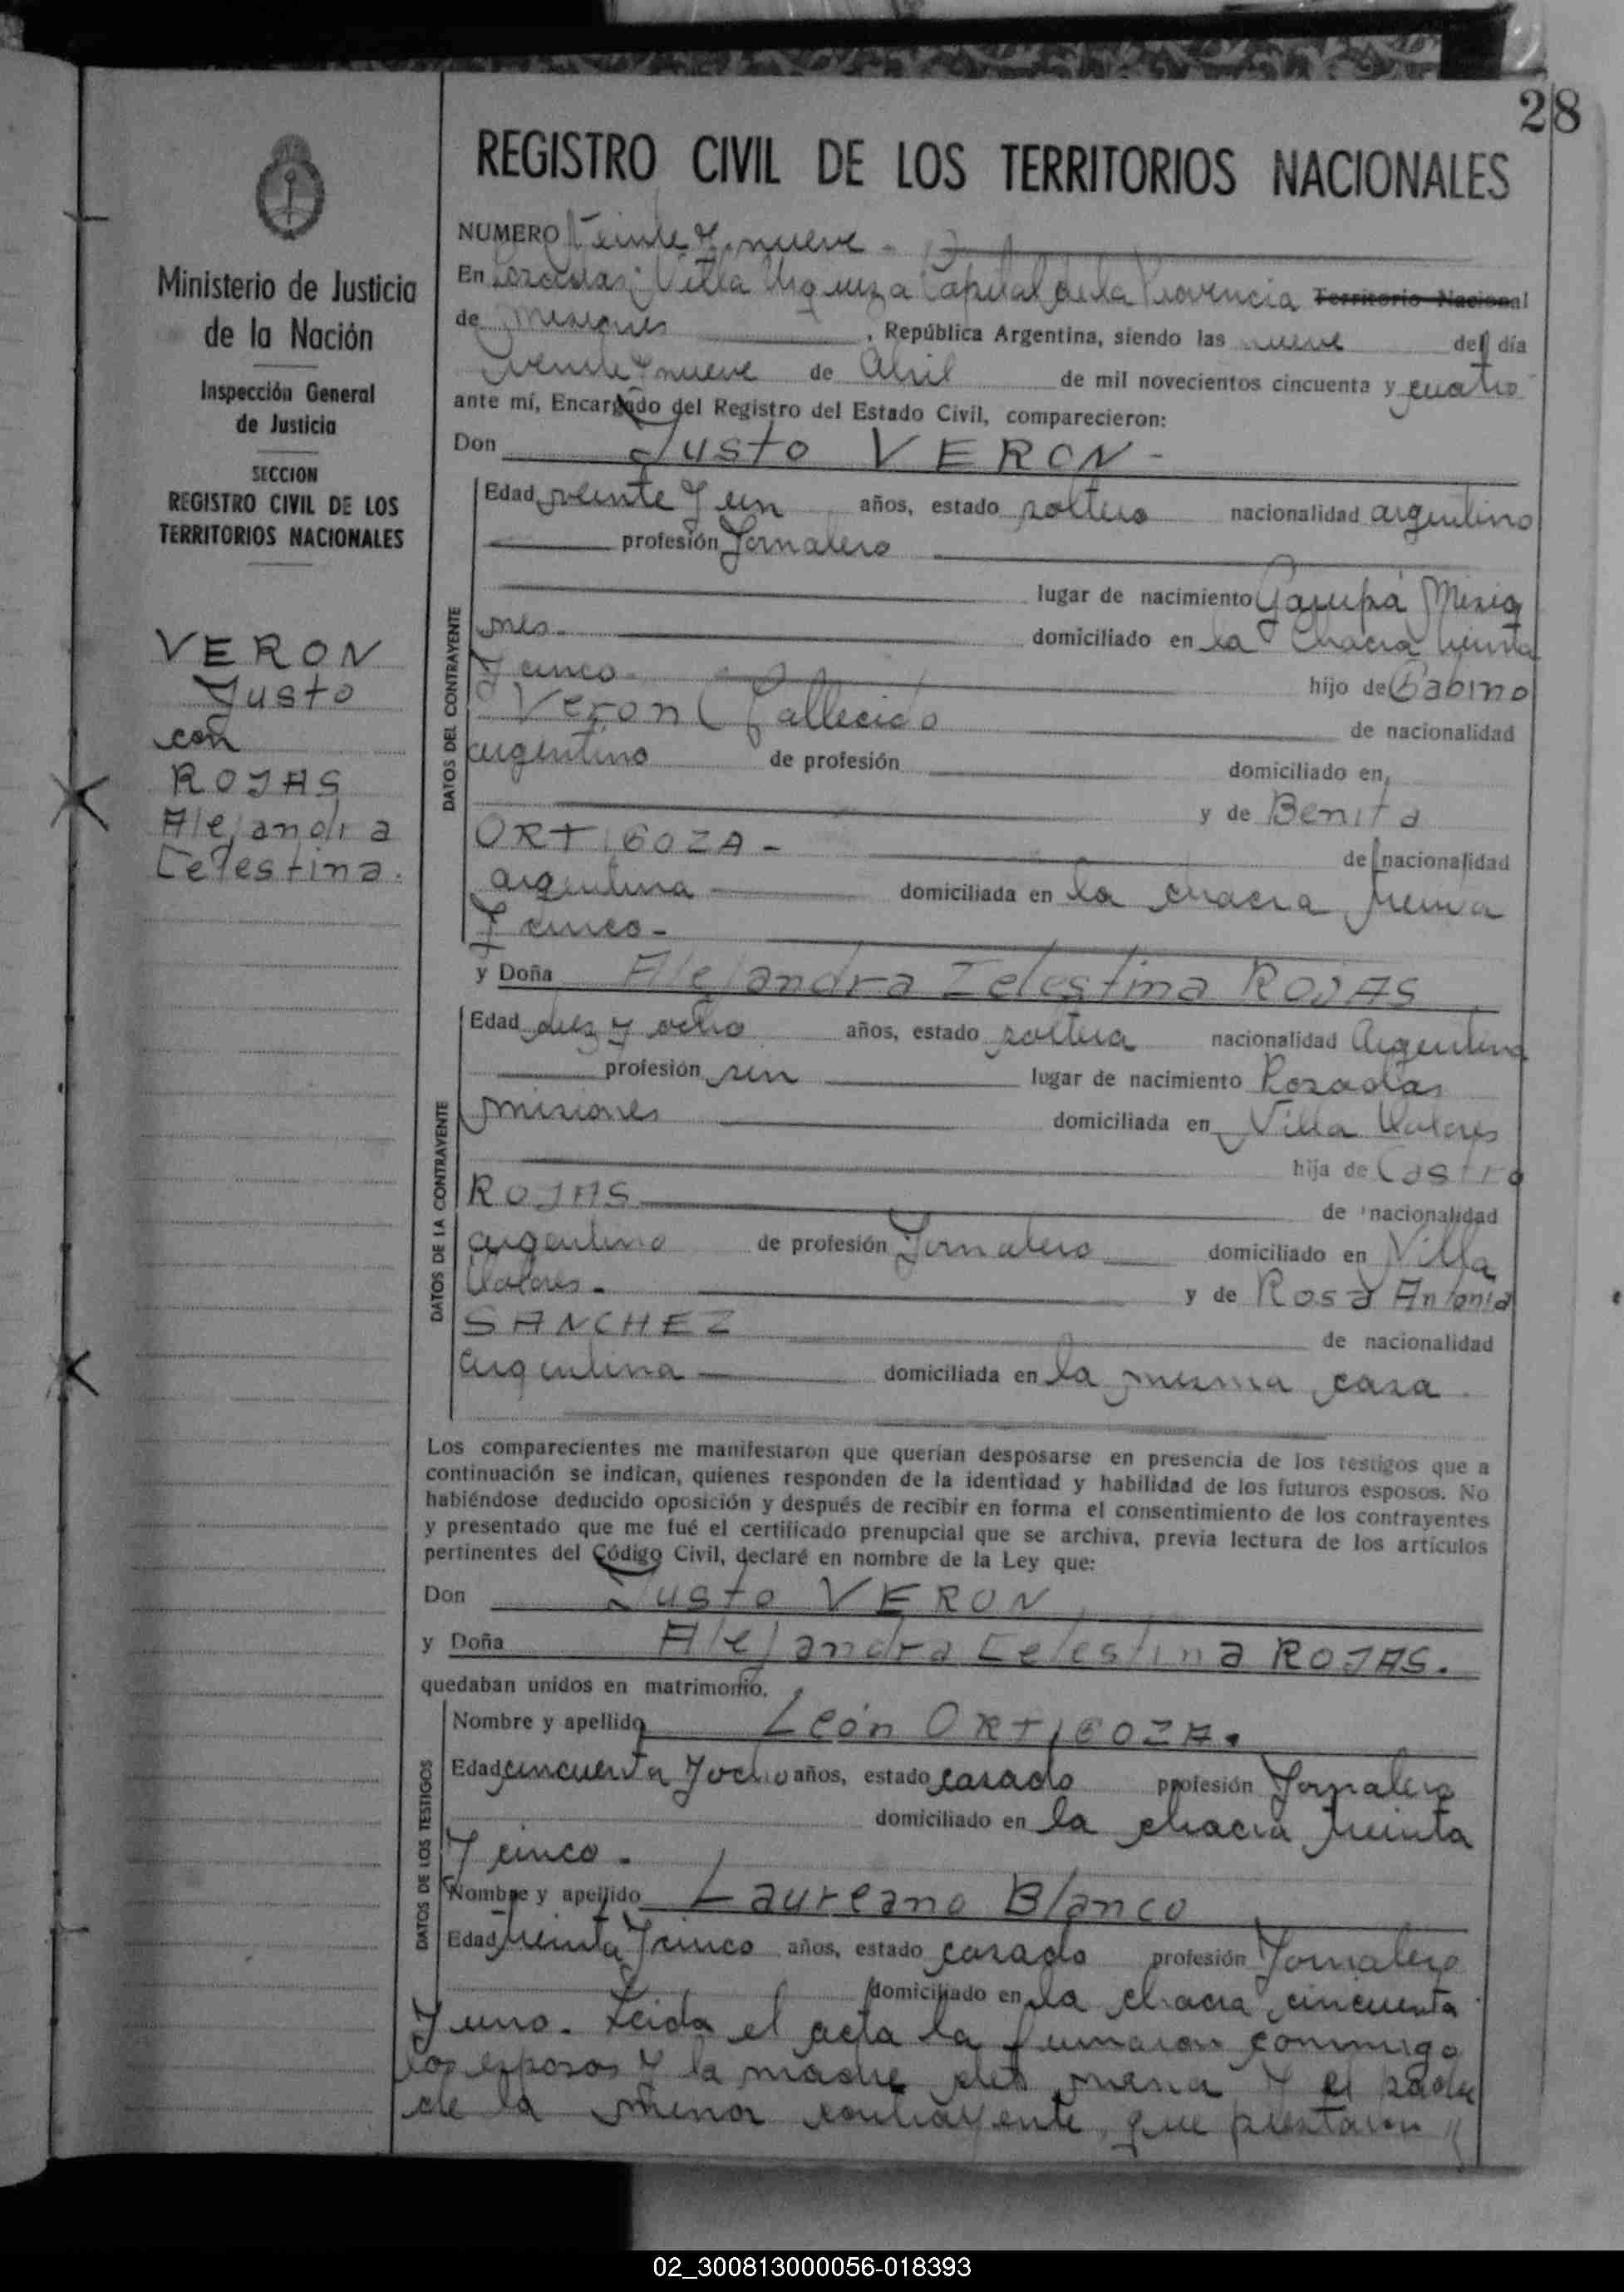 28
REGISTRO CIVIL DE LOS TERRITORIOS NACIONALES
Ministerio de Justicia
de la Nación
Inspección General
de Justicia
SECCION
REGISTRO CIVIL DE LOS
TERRITORIOS NACIONALES
VERON
Justo
con
ROJAS
Alejandra
Celestina.
NUMERO Veinte y nueve -
En Posadas: Villa Urquiza Capital de la Provincia Territorio Nacional
de Misiones, República Argentina, siendo las nueve del día
veinte y nueve de Abril de mil novecientos cincuenta y cuatro
ante mí, Encargado del Registro del Estado Civil, comparecieron:
Don Justo VERON -
DATOS DEL CONTRAYENTE
Edad veinte y un años, estado soltero nacionalidad argentino
profesión Jornalero
lugar de nacimiento Garupá Misio
nes. domiciliado en la Chacra treinta
y cinco - hijo de Gabino
Veron (fallecido de nacionalidad
argentino de profesión domiciliado en
y de Benita
ORTIGOZA - de nacionalidad
argentina domiciliada en la chacra treinta
y cinco -
y Doña Alejandra Celestina ROJAS
DATOS DE LA CONTRAYENTE
Edad diez y ocho años, estado soltera nacionalidad Argentina
profesión sin lugar de nacimiento Posadas
Misiones domiciliada en Villa
hija de Castro
ROJAS de nacionalidad
argentino de profesión Jornalero domiciliado en Villa
y de Rosa Antonia
SANCHEZ de nacionalidad
argentina domiciliada en la misma casa
Los comparecientes me manifestaron que querían desposarse en presencia de los testigos que a
continuación se indican, quienes responden de la identidad y habilidad de los futuros esposos. No
habiéndose deducido oposición y después de recibir en forma el consentimiento de los contrayentes
y presentado que me fué el certificado prenupcial que se archiva, previa lectura de los artículos
pertinentes del Código Civil, declaré en nombre de la Ley que:
Don Justo VERON
y Doña Alejandra Celestina ROJAS.
quedaban unidos en matrimonio.
DATOS DE LOS TESTIGOS
Nombre y apellido León ORTIGOZA.
Edad cincuenta y ocho años, estado casado profesión Jornalero
domiciliado en la chacra treinta
y cinco.
Nombre y apellido Laureano Blanco
Edad treinta y cinco años, estado casado profesión Jornalero
domiciliado en la chacra cincuenta
y uno. Leída el acta la firmaron conmigo
los esposos y la madre del y el padre
de la menor contrayente, que prestaron
02_300813000056-018393